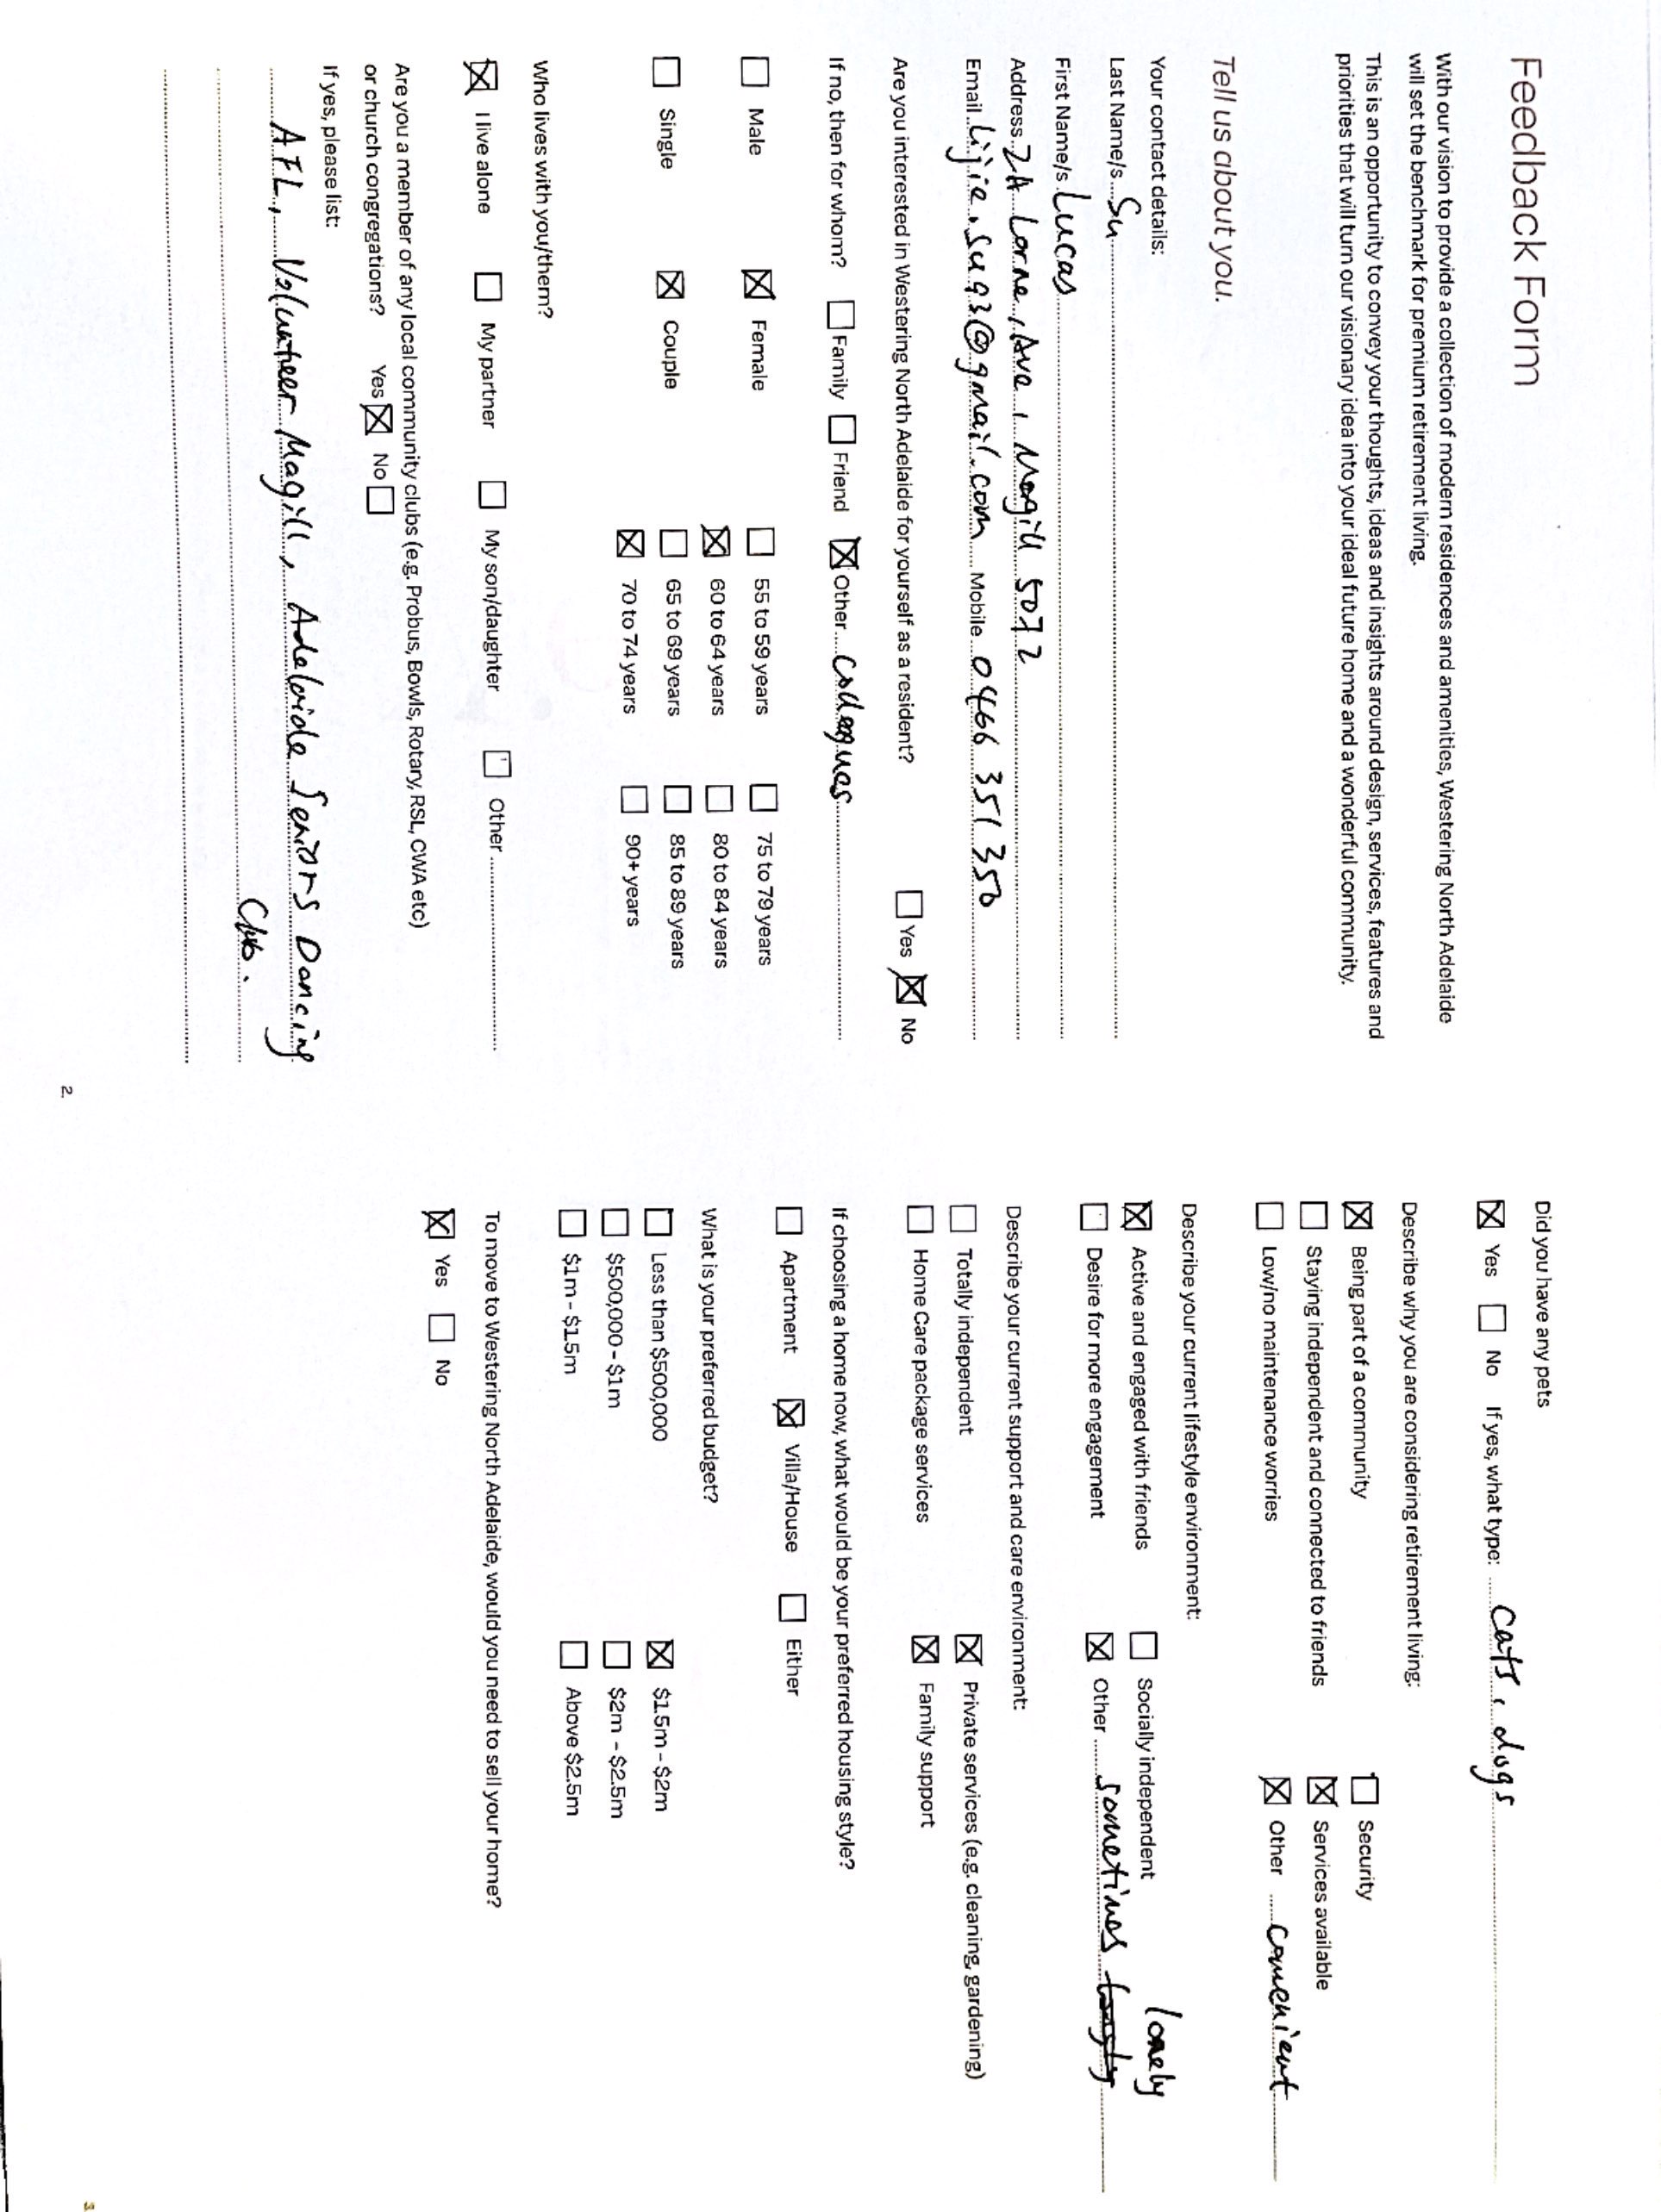 Feedback Form
With our vision to provide a collection of modern residences and amenities, Westering North Adelaide
will set the benchmark for premium retirement living.
This is an opportunity to convey your thoughts, ideas and insights around design, services, features and
priorities that will turn our visionary idea into your ideal future home and a wonderful community.
Tell us about you.
Your contact details:
Last Name/s Su
First Name/s Lucas
Address 2A Lorne, Ave, Magill 5072
Email lijie.su93@gmail.com Mobile 0466 351 350
Are you interested in Westering North Adelaide for yourself as a resident? Yes No
If no, then for whom? Family Friend Other colleagues
Male Female 55 to 59 years 75 to 79 years
60 to 64 years 80 to 84 years
Single Couple 65 to 69 years 85 to 89 years
70 to 74 years 90+ years
Who lives with you/them?
I live alone My partner My son/daughter Other
Are you a member of any local community clubs (e.g. Probus, Bowls, Rotary, RSL, CWA etc)
or church congregations? Yes No
If yes, please list:
AFL, Volunteer Magill, Adelaide Seniors Dancing
Club.
2.
Did you have any pets
Yes No If yes, what type: cats, dogs
Describe why you are considering retirement living:
Being part of a community Security
Staying independent and connected to friends Services available
Low/no maintenance worries Other convenient
Describe your current lifestyle environment:
Active and engaged with friends Socially independent lonely
Desire for more engagement Other sometimes
Describe your current support and care environment:
Totally independent Private services (e.g. cleaning, gardening)
Home Care package services Family support
If choosing a home now, what would be your preferred housing style?
Apartment Villa/House Either
What is your preferred budget?
Less than $500,000 $1.5m - $2m
$500,000 - $1m $2m - $2.5m
$1m - $1.5m Above $2.5m
To move to Westering North Adelaide, would you need to sell your home?
Yes No
3.